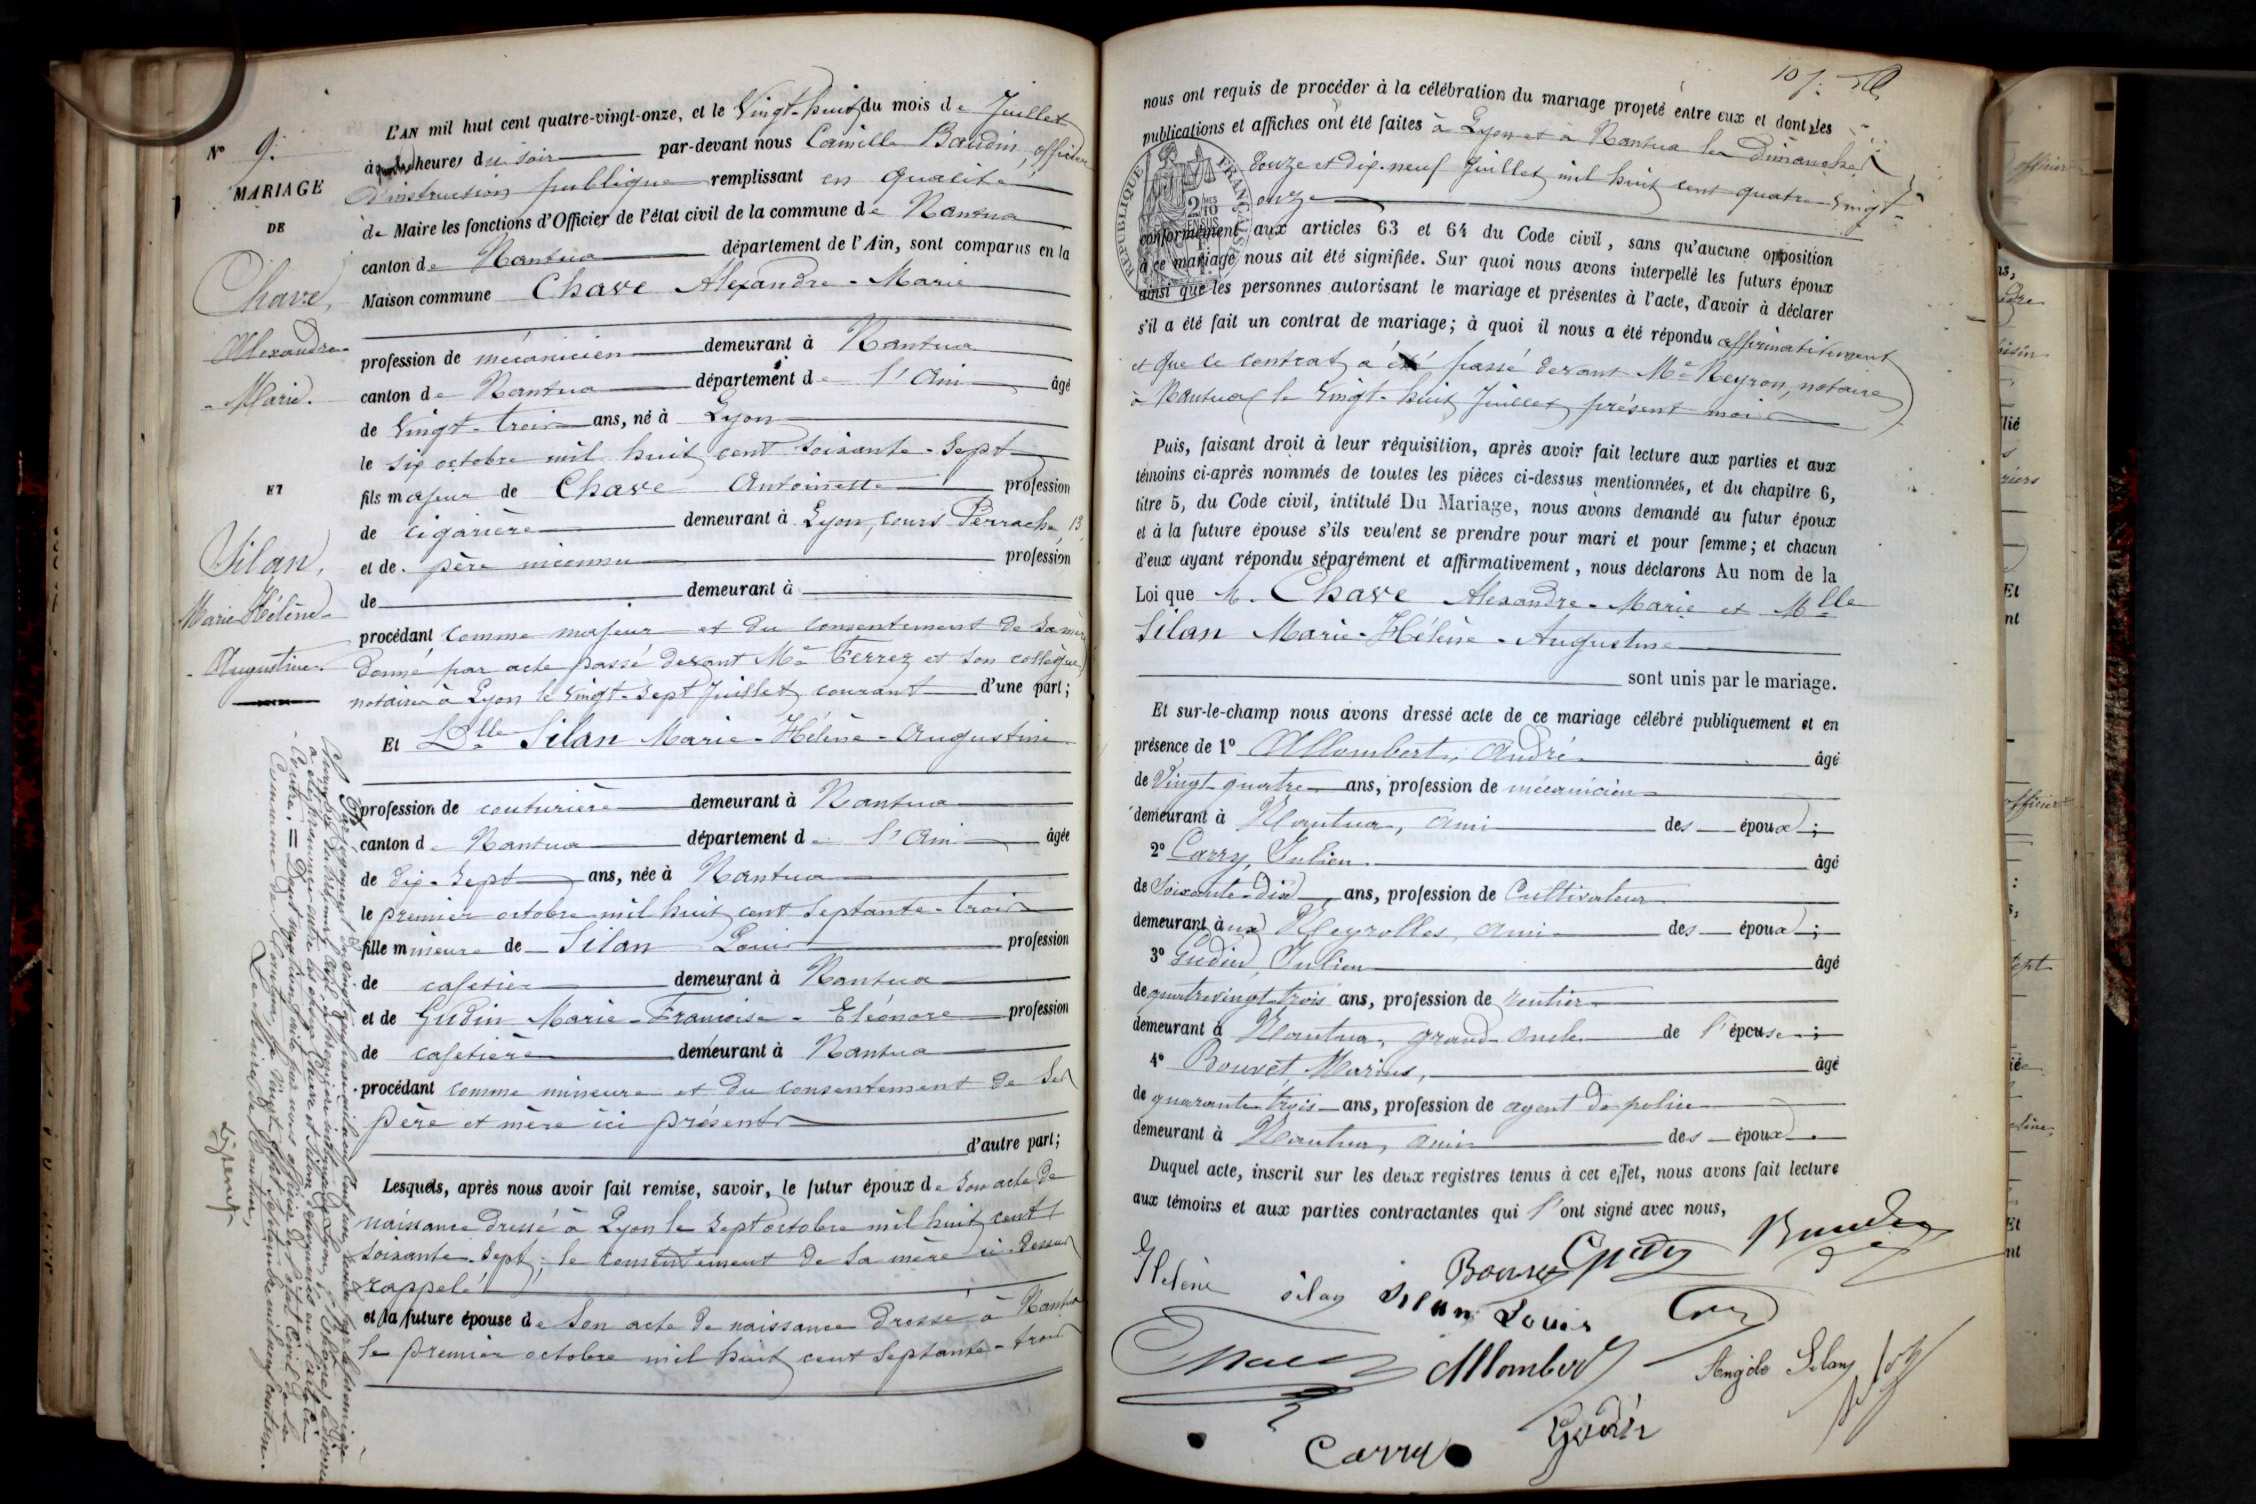 N° 9.
MARIAGE
DE
Chave,
Alexandre-
-Marie.
ET
Silan,
Marie-Hélène-
-Augustine.
L'AN mil huit cent quatre-vingt-onze, et le Vingt-huit du mois de Juillet
à heures du soir par-devant nous Camille Baudin, officier
d'instruction publique remplissant en qualité
de Maire les fonctions d'Officier de l'état civil de la commune de Nantua
canton de Nantua département de l'Ain, sont comparus en la
Maison commune Chave Alexandre-Marie
profession de mécanicien demeurant à Nantua
canton de Nantua département de l'Ain âgé
de Vingt-trois ans, né à Lyon
le six octobre mil huit cent soixante-sept
fils majeur de Chave Antoinette profession
de cigarière demeurant à Lyon, cours Perrache, 13,
et de père inconnu profession
de demeurant à
procédant comme majeur et du consentement de sa mère
donné par acte passé devant Me Ferrez et son collègue
notaires à Lyon le vingt-sept Juillet courant d'une part;
Et Dlle Silan Marie-Hélène-Augustine
profession de couturière demeurant à Nantua
canton de Nantua département de l'Ain âgée
de dix-sept ans, née à Nantua
le premier octobre mil huit cent septante-trois
fille mineure de Silan Louis profession
de cafetier demeurant à Nantua
et de Gudin Marie-Françoise-Eléonore profession
de cafetière demeurant à Nantua
procédant comme mineure et du consentement de ses
père et mère ici présents
d'autre part;
Lesquels, après nous avoir fait remise, savoir, le futur époux de son acte de
naissance dressé à Lyon le sept octobre mil huit cent
soixante-sept; le consentement de sa mère ci-dessus
rappelé
et la future épouse de son acte de naissance dressé à Nantua
le premier octobre mil huit cent septante-trois
Par jugement
a été prononcé entre les époux Chave et Silan
Commune de Nantua, le vingt
Le Maire de Nantua,
107.
nous ont requis de procéder à la célébration du mariage projeté entre eux et dont les
publications et affiches ont été faites à Lyon et à Nantua les Dimanches
douze et dix-neuf Juillet mil huit cent quatre-vingt-
onze
RÉPUBLIQUE FRANÇAISE
2/10
EN SUS
conformément aux articles 63 et 64 du Code civil, sans qu'aucune opposition
à ce mariage nous ait été signifiée. Sur quoi nous avons interpellé les futurs époux
ainsi que les personnes autorisant le mariage et présentes à l'acte, d'avoir à déclarer
s'il a été fait un contrat de mariage; à quoi il nous a été répondu affirmativement
et que ce contrat a été passé devant Me Neyron, notaire
à Nantua le vingt-huit Juillet présent mois
Puis, faisant droit à leur réquisition, après avoir fait lecture aux parties et aux
témoins ci-après nommés de toutes les pièces ci-dessus mentionnées, et du chapitre 6,
titre 5, du Code civil, intitulé Du Mariage, nous avons demandé au futur époux
et à la future épouse s'ils veulent se prendre pour mari et pour femme; et chacun
d'eux ayant répondu séparément et affirmativement, nous déclarons Au nom de la
Loi que M. Chave Alexandre-Marie et Mlle
Silan Marie-Hélène-Augustine
sont unis par le mariage.
Et sur-le-champ nous avons dressé acte de ce mariage célébré publiquement et en
présence de 1° Allombert, André âgé
de Vingt-quatre ans, profession de mécanicien
demeurant à Nantua, ami des époux;
2° Carry, Julien âgé
de soixante-dix ans, profession de Cultivateur
demeurant aux Neyrolles, ami des époux;
3° Gudin, Julien âgé
de quatrevingt-trois ans, profession de rentier
demeurant à Nantua, grand-oncle de l'épouse;
4° Bouvet Marius, âgé
de quarante-trois ans, profession de agent de police
demeurant à Nantua, ami des époux.
Duquel acte, inscrit sur les deux registres tenus à cet effet, nous avons fait lecture
aux témoins et aux parties contractantes qui l'ont signé avec nous,
Hélène silan Silan Louis
Bouvet
Allombert Angèle Silan
Carry Gudin